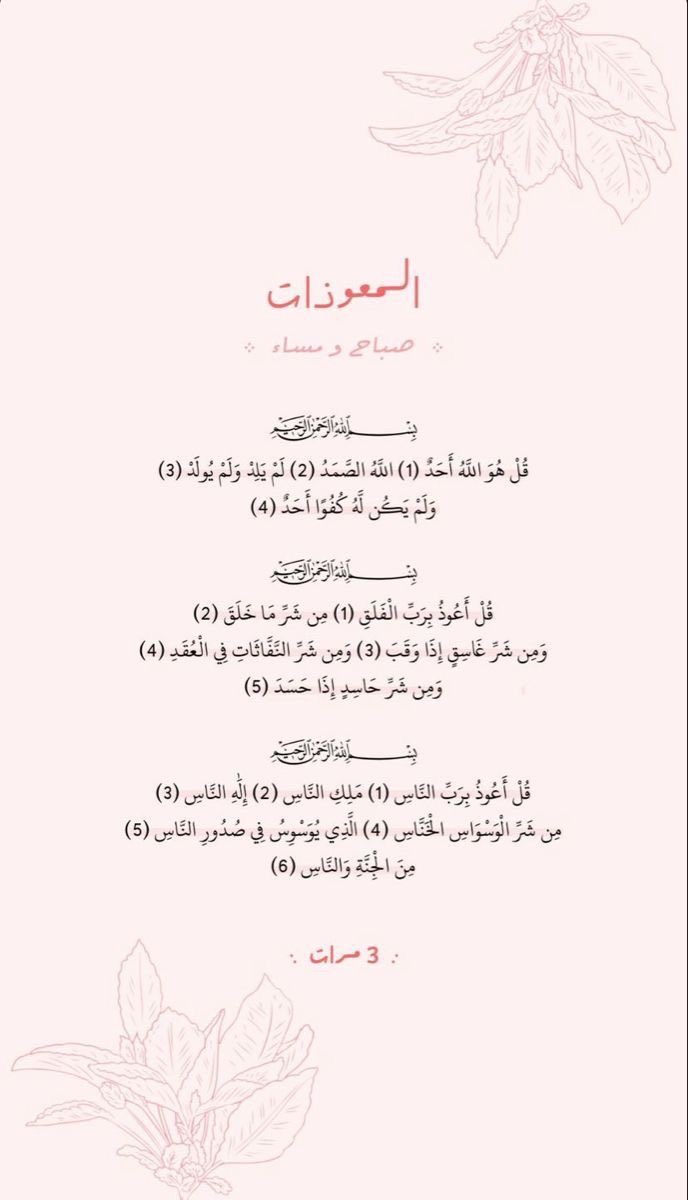 المعوذات
صباح و مساء
بِسْمِ اللَّهِ الرَّحْمَٰنِ الرَّحِيمِ
قُلْ هُوَ اللَّهُ أَحَدٌ (1) اللَّهُ الصَّمَدُ (2) لَمْ يَلِدْ وَلَمْ يُولَدْ (3)
وَلَمْ يَكُن لَّهُ كُفُوًا أَحَدٌ (4)
بِسْمِ اللَّهِ الرَّحْمَٰنِ الرَّحِيمِ
قُلْ أَعُوذُ بِرَبِّ الْفَلَقِ (1) مِن شَرِّ مَا خَلَقَ (2)
وَمِن شَرِّ غَاسِقٍ إِذَا وَقَبَ (3) وَمِن شَرِّ النَّفَّاثَاتِ فِي الْعُقَدِ (4)
وَمِن شَرِّ حَاسِدٍ إِذَا حَسَدَ (5)
بِسْمِ اللَّهِ الرَّحْمَٰنِ الرَّحِيمِ
قُلْ أَعُوذُ بِرَبِّ النَّاسِ (1) مَلِكِ النَّاسِ (2) إِلَٰهِ النَّاسِ (3)
مِن شَرِّ الْوَسْوَاسِ الْخَنَّاسِ (4) الَّذِي يُوَسْوِسُ فِي صُدُورِ النَّاسِ (5)
مِنَ الْجِنَّةِ وَالنَّاسِ (6)
3 مرات